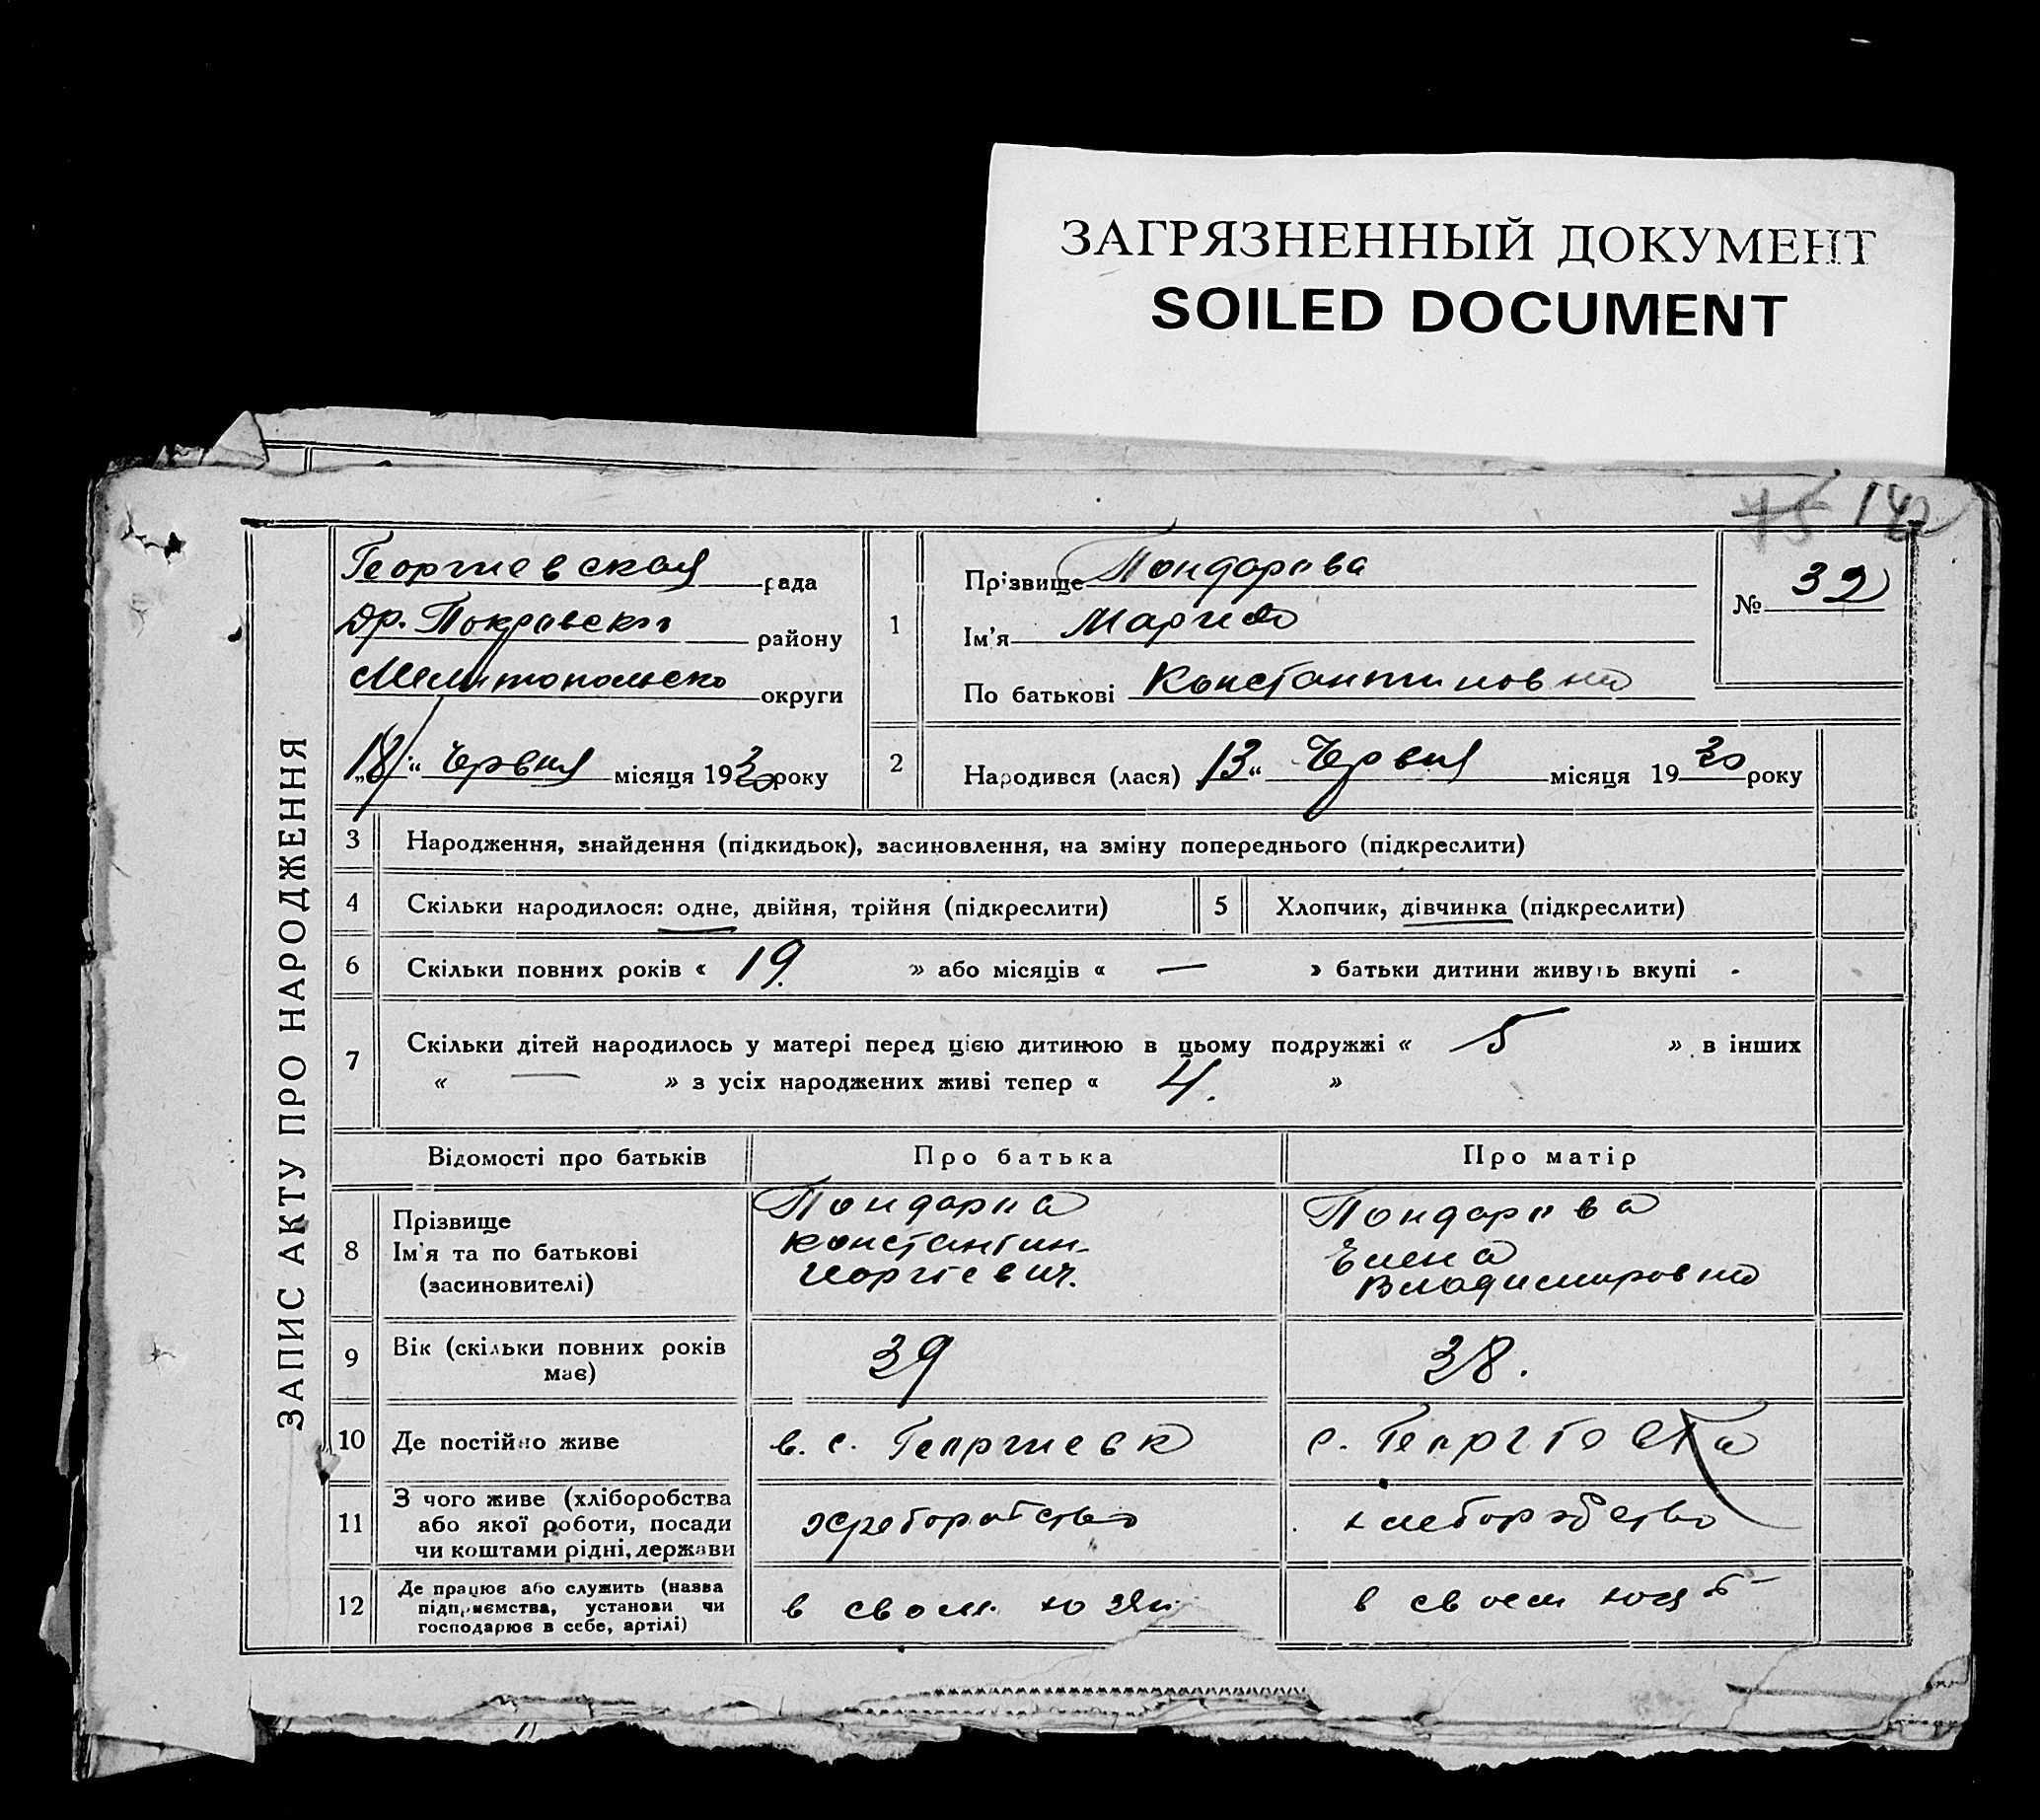 ЗАГРЯЗНЕННЫЙ ДОКУМЕНТ
SOILED DOCUMENT
75 142
ЗАПИС АКТУ ПРО НАРОДЖЕННЯ
Георгиевская рада
Др. Покравски району
Мелитопольско округи
„18“ Червня місяця 1930 року
1
Прізвище Пондарва
Ім'я Мария
По батькові Константиновна
№ 32
2
Народився (лася) 13“ Червня місяця 1930 року
3 Народження, знайдення (підкидьок), засиновлення, на зміну попереднього (підкреслити)
4 Скільки народилося: одне, двійня, трійня (підкреслити) 5 Хлопчик, дівчинка (підкреслити)
6 Скільки повних років « 19. » або місяців « — » батьки дитини живуть вкупі
7 Скільки дітей народилось у матері перед цією дитиною в цьому подружжі « 5 » в інших
« — » з усіх народжених живі тепер « 4. »
Відомості про батьків Про батька Про матір
8 Прізвище
Ім'я та по батькові
(засиновителі)
Константин
Георгіевич.
Елена
Владимировна
9 Вік (скільки повних років має) 39 38.
10 Де постійно живе в. с. Георгиевк с. Георгіевка
11 З чого живе (хліборобства
або якої роботи, посади
чи коштами рідні, держави
хлеборобство
12 Де працює або служить (назва
підприємства, установи чи
господарює в себе, артілі)
в своем в своем